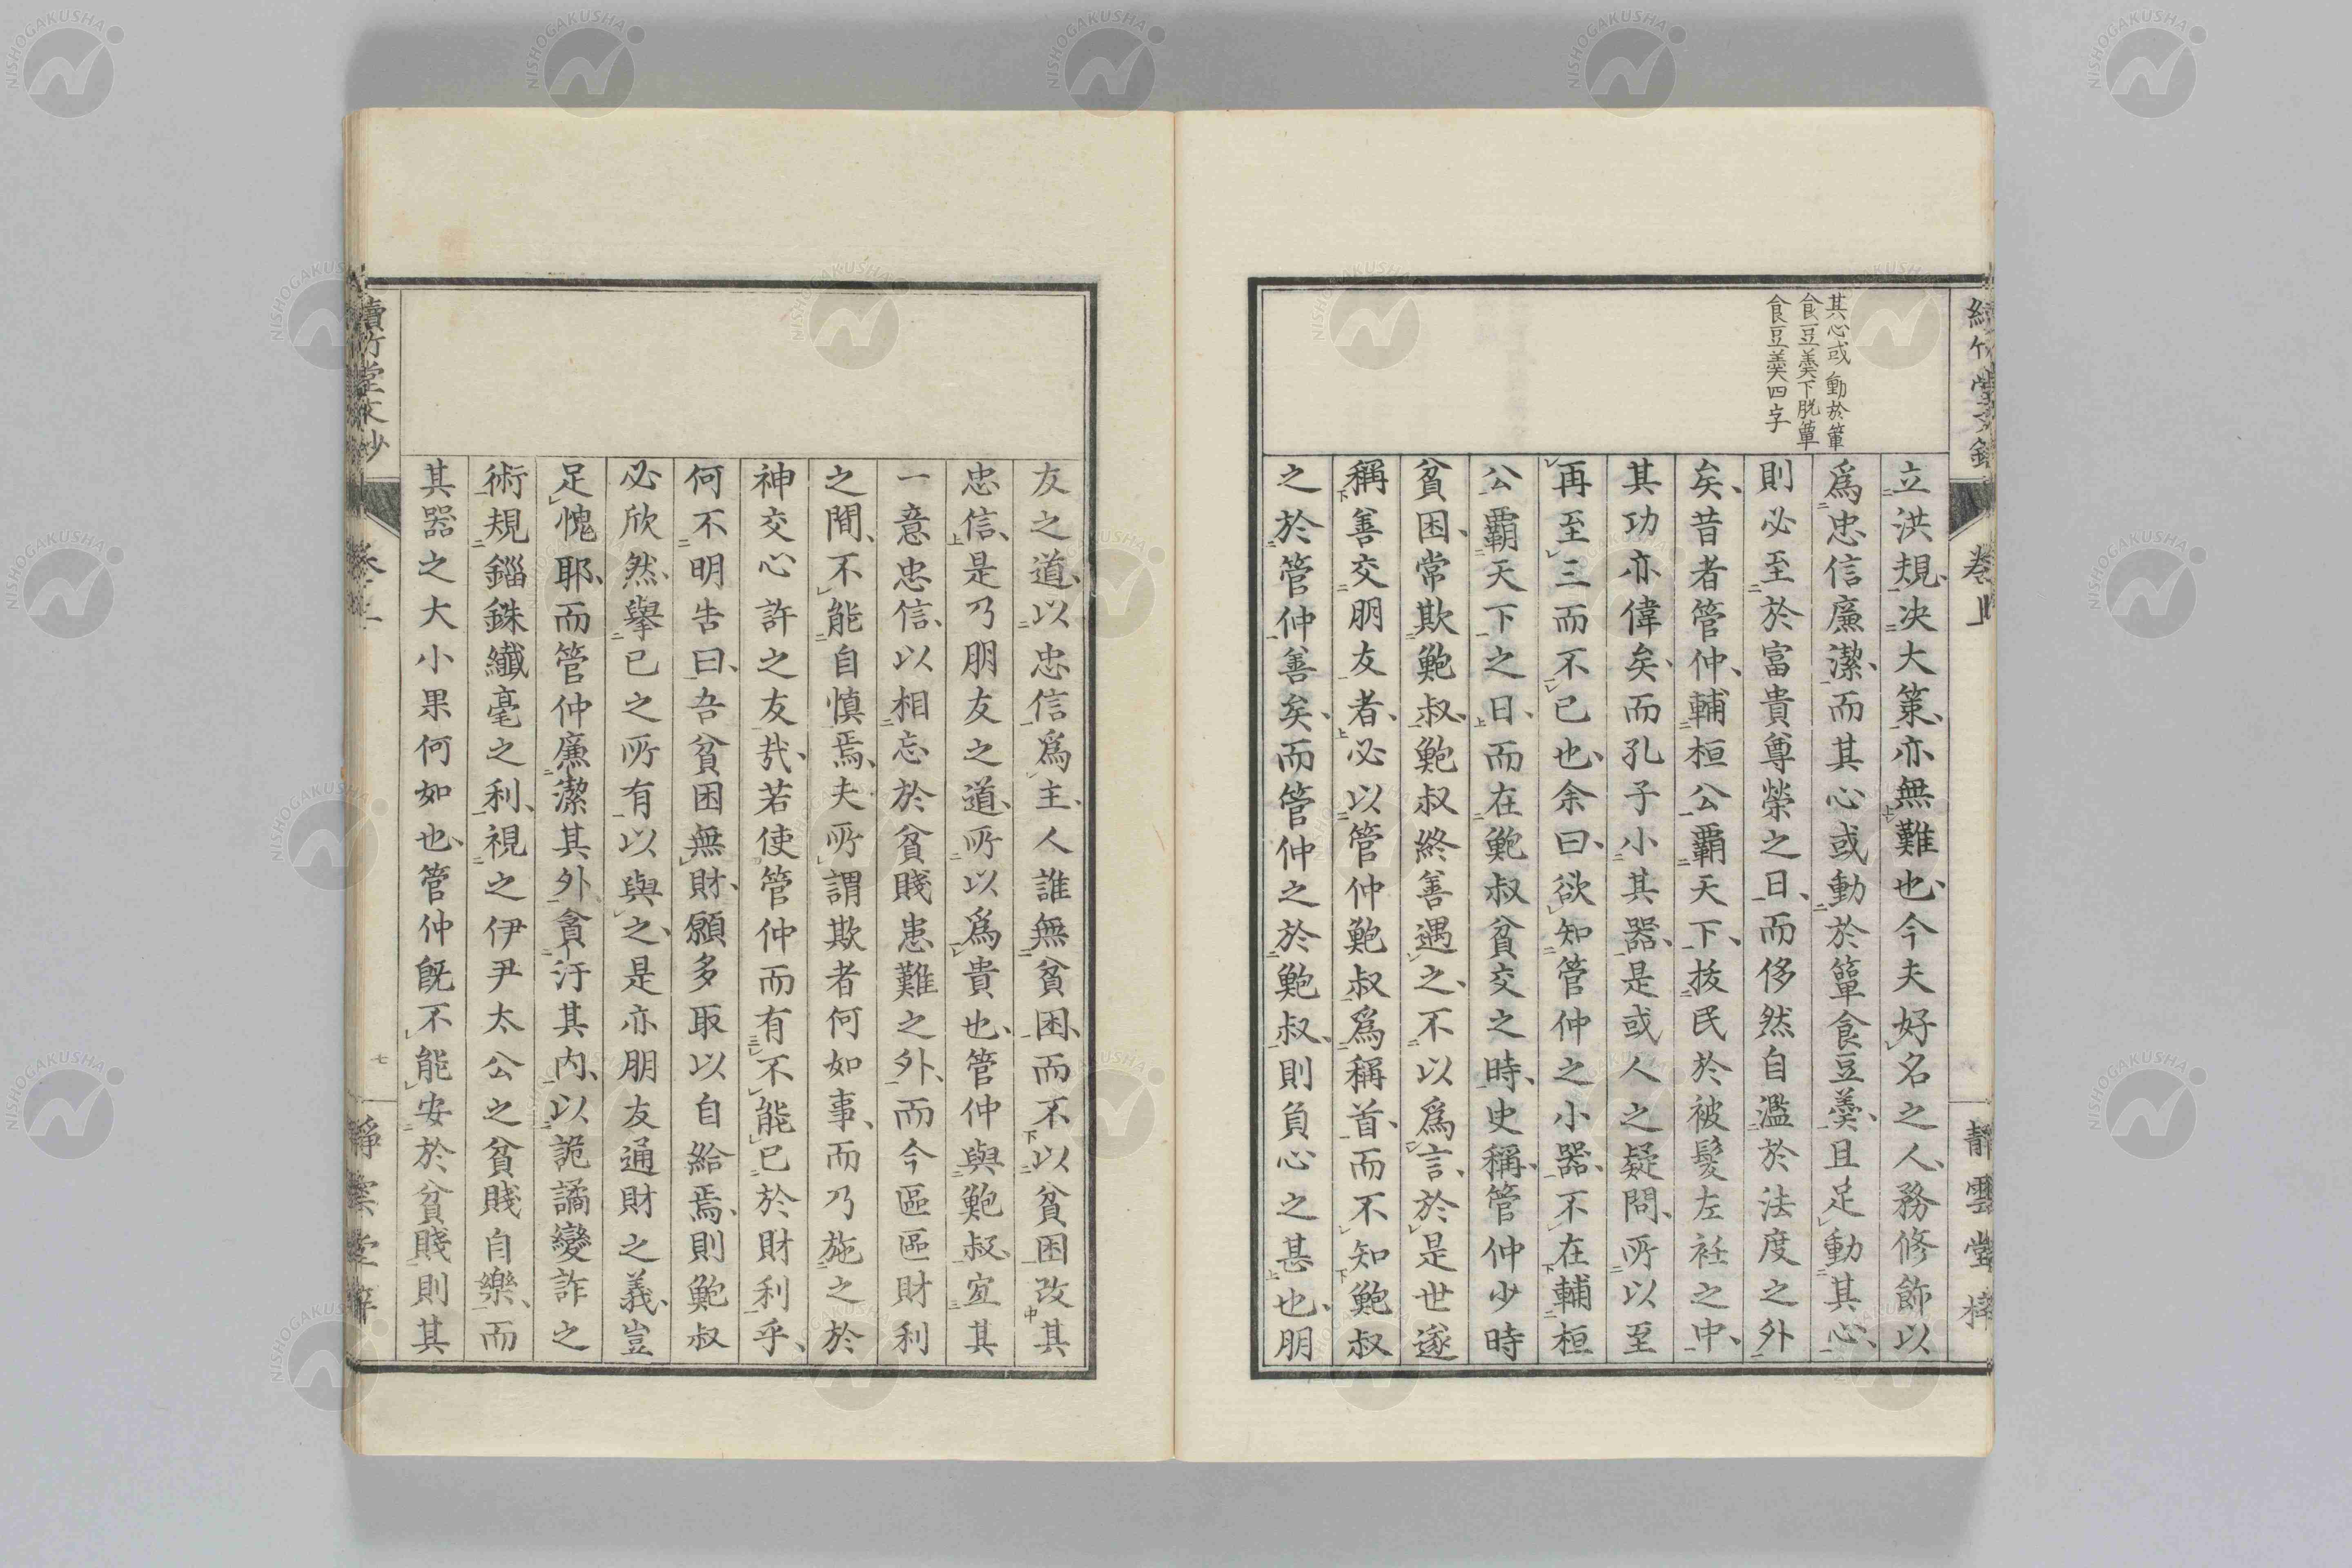 其心或動於簞
食豆羹下脫簞
食豆羹四字
立洪規、決大策、亦無難也、今夫好名之人、務修飾以
爲忠信廉潔、而其心或動於簞食豆羹、且足動其心、
則必至於富貴尊榮之日、而侈然自濫於法度之外
矣、昔者管仲、輔桓公覇天下、拔民於被髮左衽之中、
其功亦偉矣、而孔子小其器、是或人之疑問、所以至
再至三而不已也、余曰、欲知管仲之小器、不在輔桓
公覇天下之日、而在鮑叔貧交之時、史稱管仲少時
貧困、常欺鮑叔、鮑叔終善遇之、不以爲言、於是世遂
稱善交朋友者、必以管仲鮑叔爲稱首、而不知鮑叔
之於管仲善矣、而管仲之於鮑叔、則負心之甚也、朋
卷上
靜雲堂梓
友之道、以忠信爲主、人誰無貧困、而不以貧困改其
忠信、是乃朋友之道、所以爲貴也、管仲與鮑叔、宜其
一意忠信、以相忘於貧賤患難之外、而今區區財利
之間、不能自愼焉、夫所謂欺者何如事、而乃施之於
神交心許之友哉、若使管仲而有不能已於財利乎、
何不明告曰、吾貧困無財、願多取以自給焉、則鮑叔
必欣然、擧已之所有以與之、是亦朋友通財之義、豈
足愧耶、而管仲廉潔其外、貪汙其內、以詭譎變詐之
術、規錙銖纖毫之利、視之伊尹太公之貧賤自樂、而
其器之大小果何如也、管仲旣不能安於貧賤、則其
讀竹堂文鈔
七
靜雲堂梓